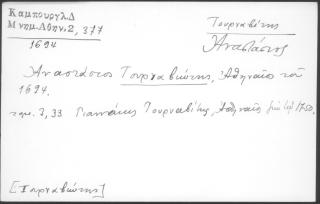 Καμπουργλ.Δ
Μνημ.Αθην.2, 377
1694
Τουρναβίτης
Ἀναστάσιος
Ἀναστάσιος Τουρναβιώτης, Ἀθηναῖος τοῦ
1694.
τομ. 3, 33 Γιαννάκης Τουρναβίτης, Ἀθηναῖος 1750.
[Τουρναβιώτης]